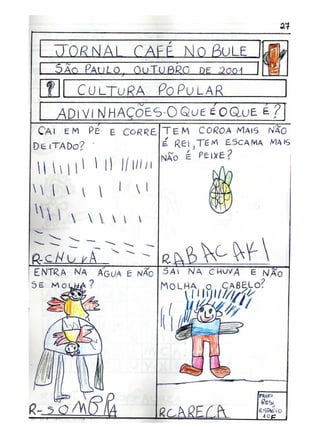 27
JORNAL CAFÉ NO BULE
SÃO PAULO, OUTUBRO DE 2001
?
CULTURA POPULAR
ADIVINHAÇÕES-O QUE É O QUE É?
CAI EM PÉ E CORRE
DEITADO?
R-CHUVA
TEM COROA MAIS NÃO
É REI, TEM ESCAMA MAIS
NÃO É PEIXE?
R ABACAXI
ENTRA NA ÁGUA E NÃO
SE MOLHA?
R-SOMBRA
SAI NA CHUVA E NÃO
MOLHA O CABELO?
R CARECA